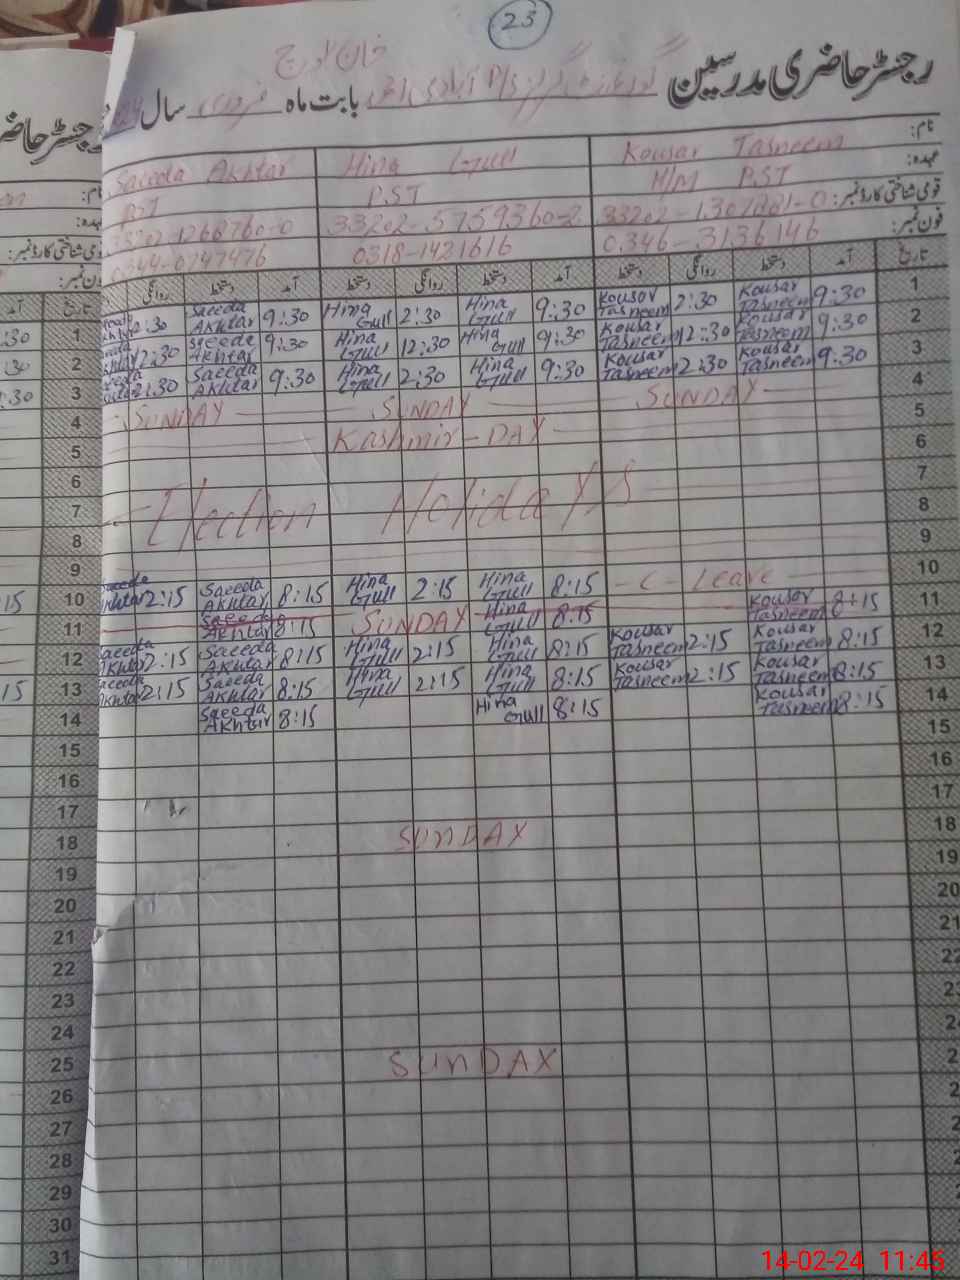 23
خان لوچ
رجسٹر حاضری مدرسین
بابت ماہ فروری سال
نام: Kousar Tasneem Hina Gull Saeeda Akhtar
عہدہ: H/M PST PST PST
قومی شناختی کارڈ نمبر: 33202-1307881-0 33202-5759360-2 33202-1266760-0
فون نمبر: 0346-3136146 0318-1421616 0344-0747476
تاریخ آمد دستخط روانگی دستخط آمد دستخط روانگی دستخط آمد دستخط روانگی
1 9:30 Kousar Tasneem 2:30 Kousar Tasneem 9:30 Hina Gull 2:30 Hina Gull 9:30 Saeeda Akhtar 2:30
2 9:30 Kousar Tasneem 12:30 Kousar Tasneem 9:30 Hina Gull 12:30 Hina Gull 9:30 Saeeda Akhtar 12:30
3 9:30 Kousar Tasneem 2:30 Kousar Tasneem 9:30 Hina Gull 2:30 Hina Gull 9:30 Saeeda Akhtar 2:30
4 SUNDAY SUNDAY SUNDAY
5 Kashmir - DAY
6
7 Election HolidaYS
8
9
10 - C - Leave 8:15 Hina Gull 2:15 Hina Gull 8:15 Saeeda Akhtar 2:15 Saeeda Akhtar
11 8:15 Kousar Tasneem 8:15 Hina Gull SUNDAY 8:15 Saeeda Akhtar
12 8:15 Kousar Tasneem 2:15 Kousar Tasneem 8:15 Hina Gull 2:15 Hina Gull 8:15 Saeeda Akhtar 2:15 Saeeda Akhtar
13 8:15 Kousar Tasneem 2:15 Kousar Tasneem 8:15 Hina Gull 2:15 Hina Gull 8:15 Saeeda Akhtar 2:15 Saeeda Akhtar
14 8:15 Kousar Tasneem 8:15 Hina Gull 8:15 Saeeda Akhtar
15
16
17
18 SUNDAY
19
20
21
22
23
24
25 SUNDAY
26
27
28
29
30
31
14-02-24 11:45